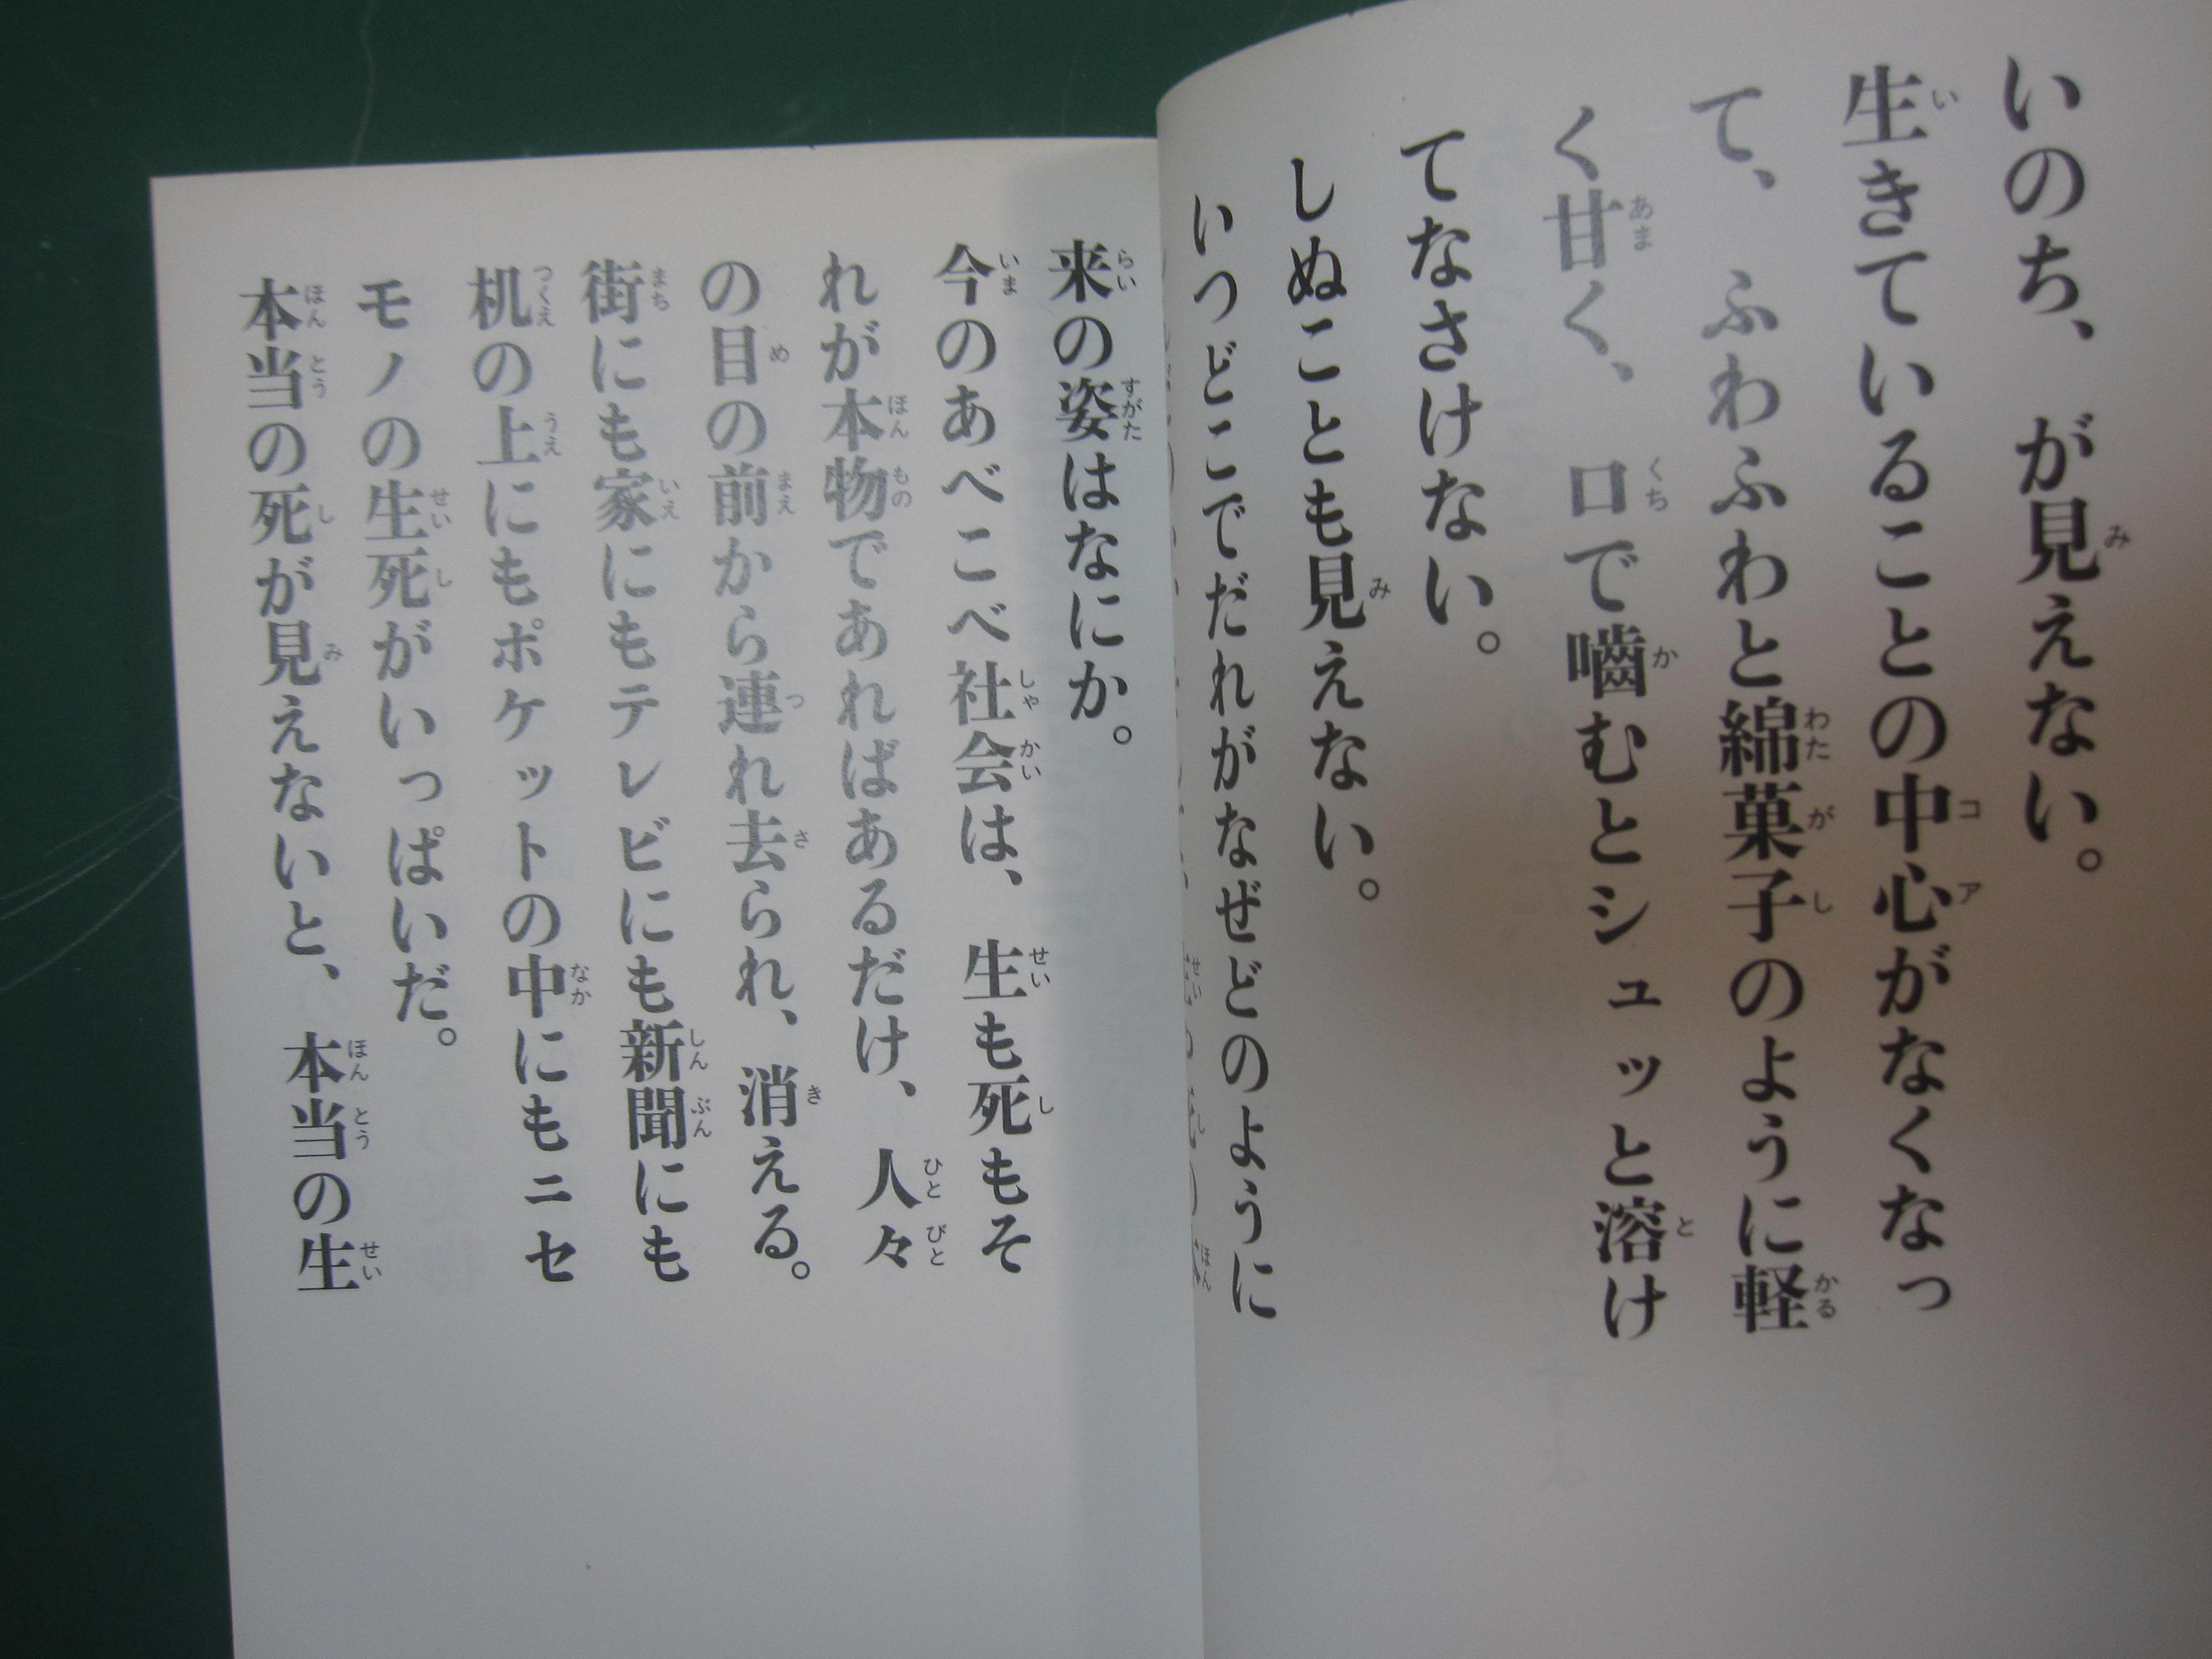 いのち、が見えない。
生きていることの中心がなくなっ
て、ふわふわと綿菓子のように軽
く甘く、口で嚙むとシュッと溶け
てなさけない。
しぬことも見えない。
いつどこでだれがなぜどのように
来の姿はなにか。
今のあべこべ社会は、生も死もそ
れが本物であればあるだけ、人々
の目の前から連れ去られ、消える。
街にも家にもテレビにも新聞にも
机の上にもポケットの中にもニセ
モノの生死がいっぱいだ。
本当の死が見えないと、本当の生